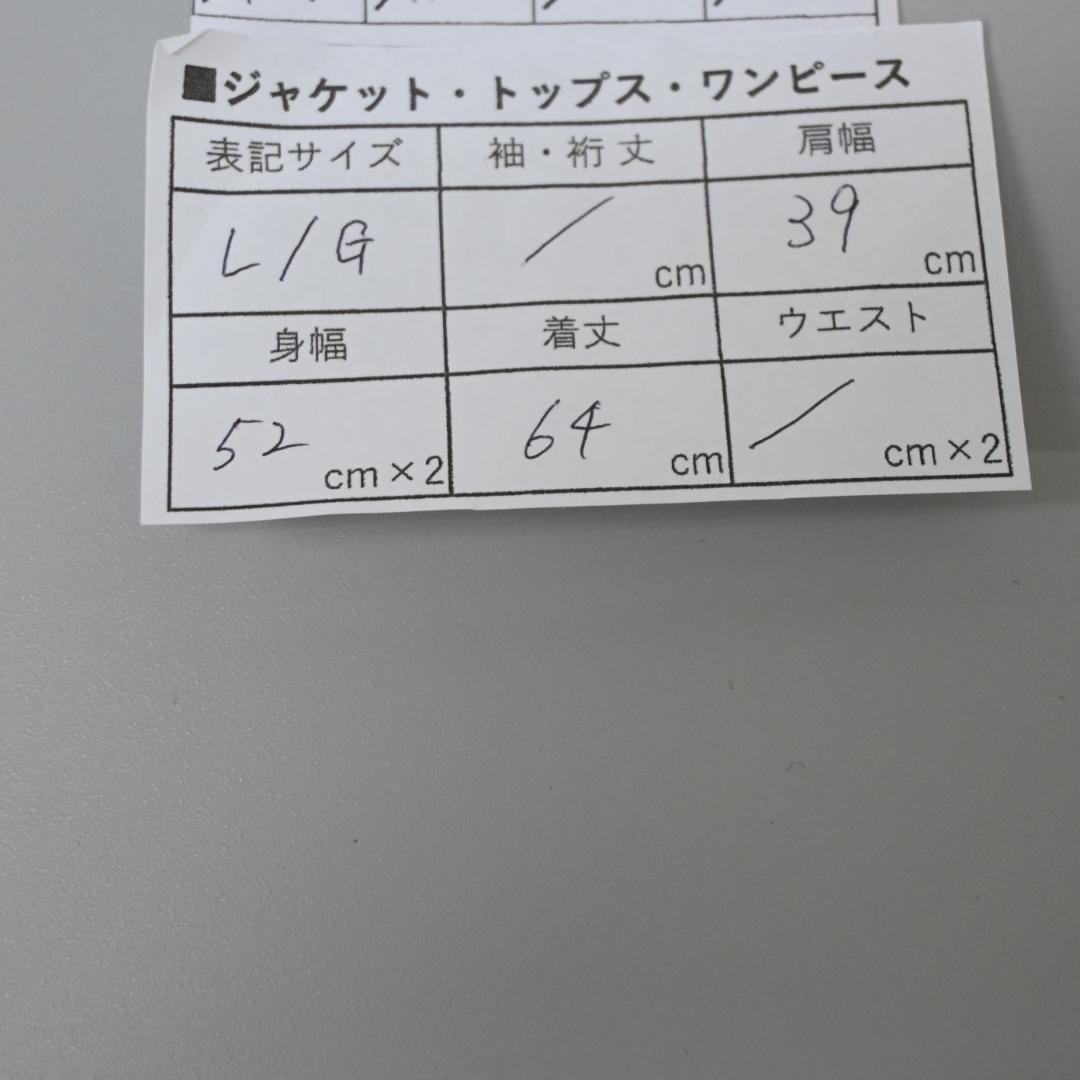 ■ジャケット・トップス・ワンピース
表記サイズ 袖・裄丈 肩幅
L/G / cm 39 cm
身幅 着丈 ウエスト
52 cm×2 64 cm / cm×2